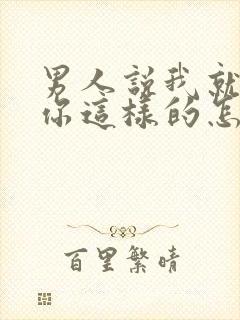 男人説我就
你這樣的怎
百里繁晴